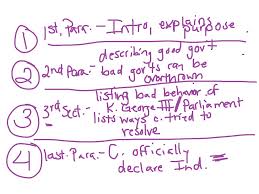 1 1st. Para. - Intro, explains purpose
describing good gov't
2 2nd Para - bad gov'ts can be overthrown
listing bad behavior of
3 3rd Sect. - K. George III / Parliament
lists ways c. tried to
resolve
4 last. Para. - C. officially
declare Ind.